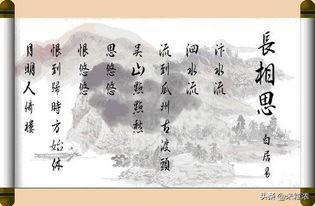 長相思
白居易
汴水流
泗水流
流到瓜州古渡頭
吴山點點愁
思悠悠
恨悠悠
恨到歸時方始休
月明人倚樓
头条 @未粒浓